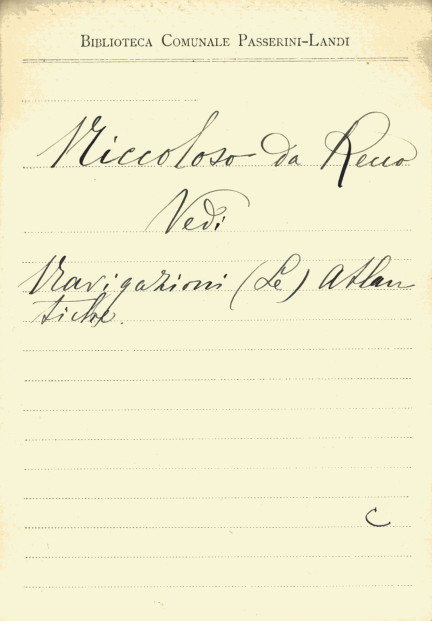 BIBLIOTECA COMUNALE PASSERINI-LANDI
Niccoloso da Recco
Vedi
Navigazioni (Le) Atlan
tiche.
C